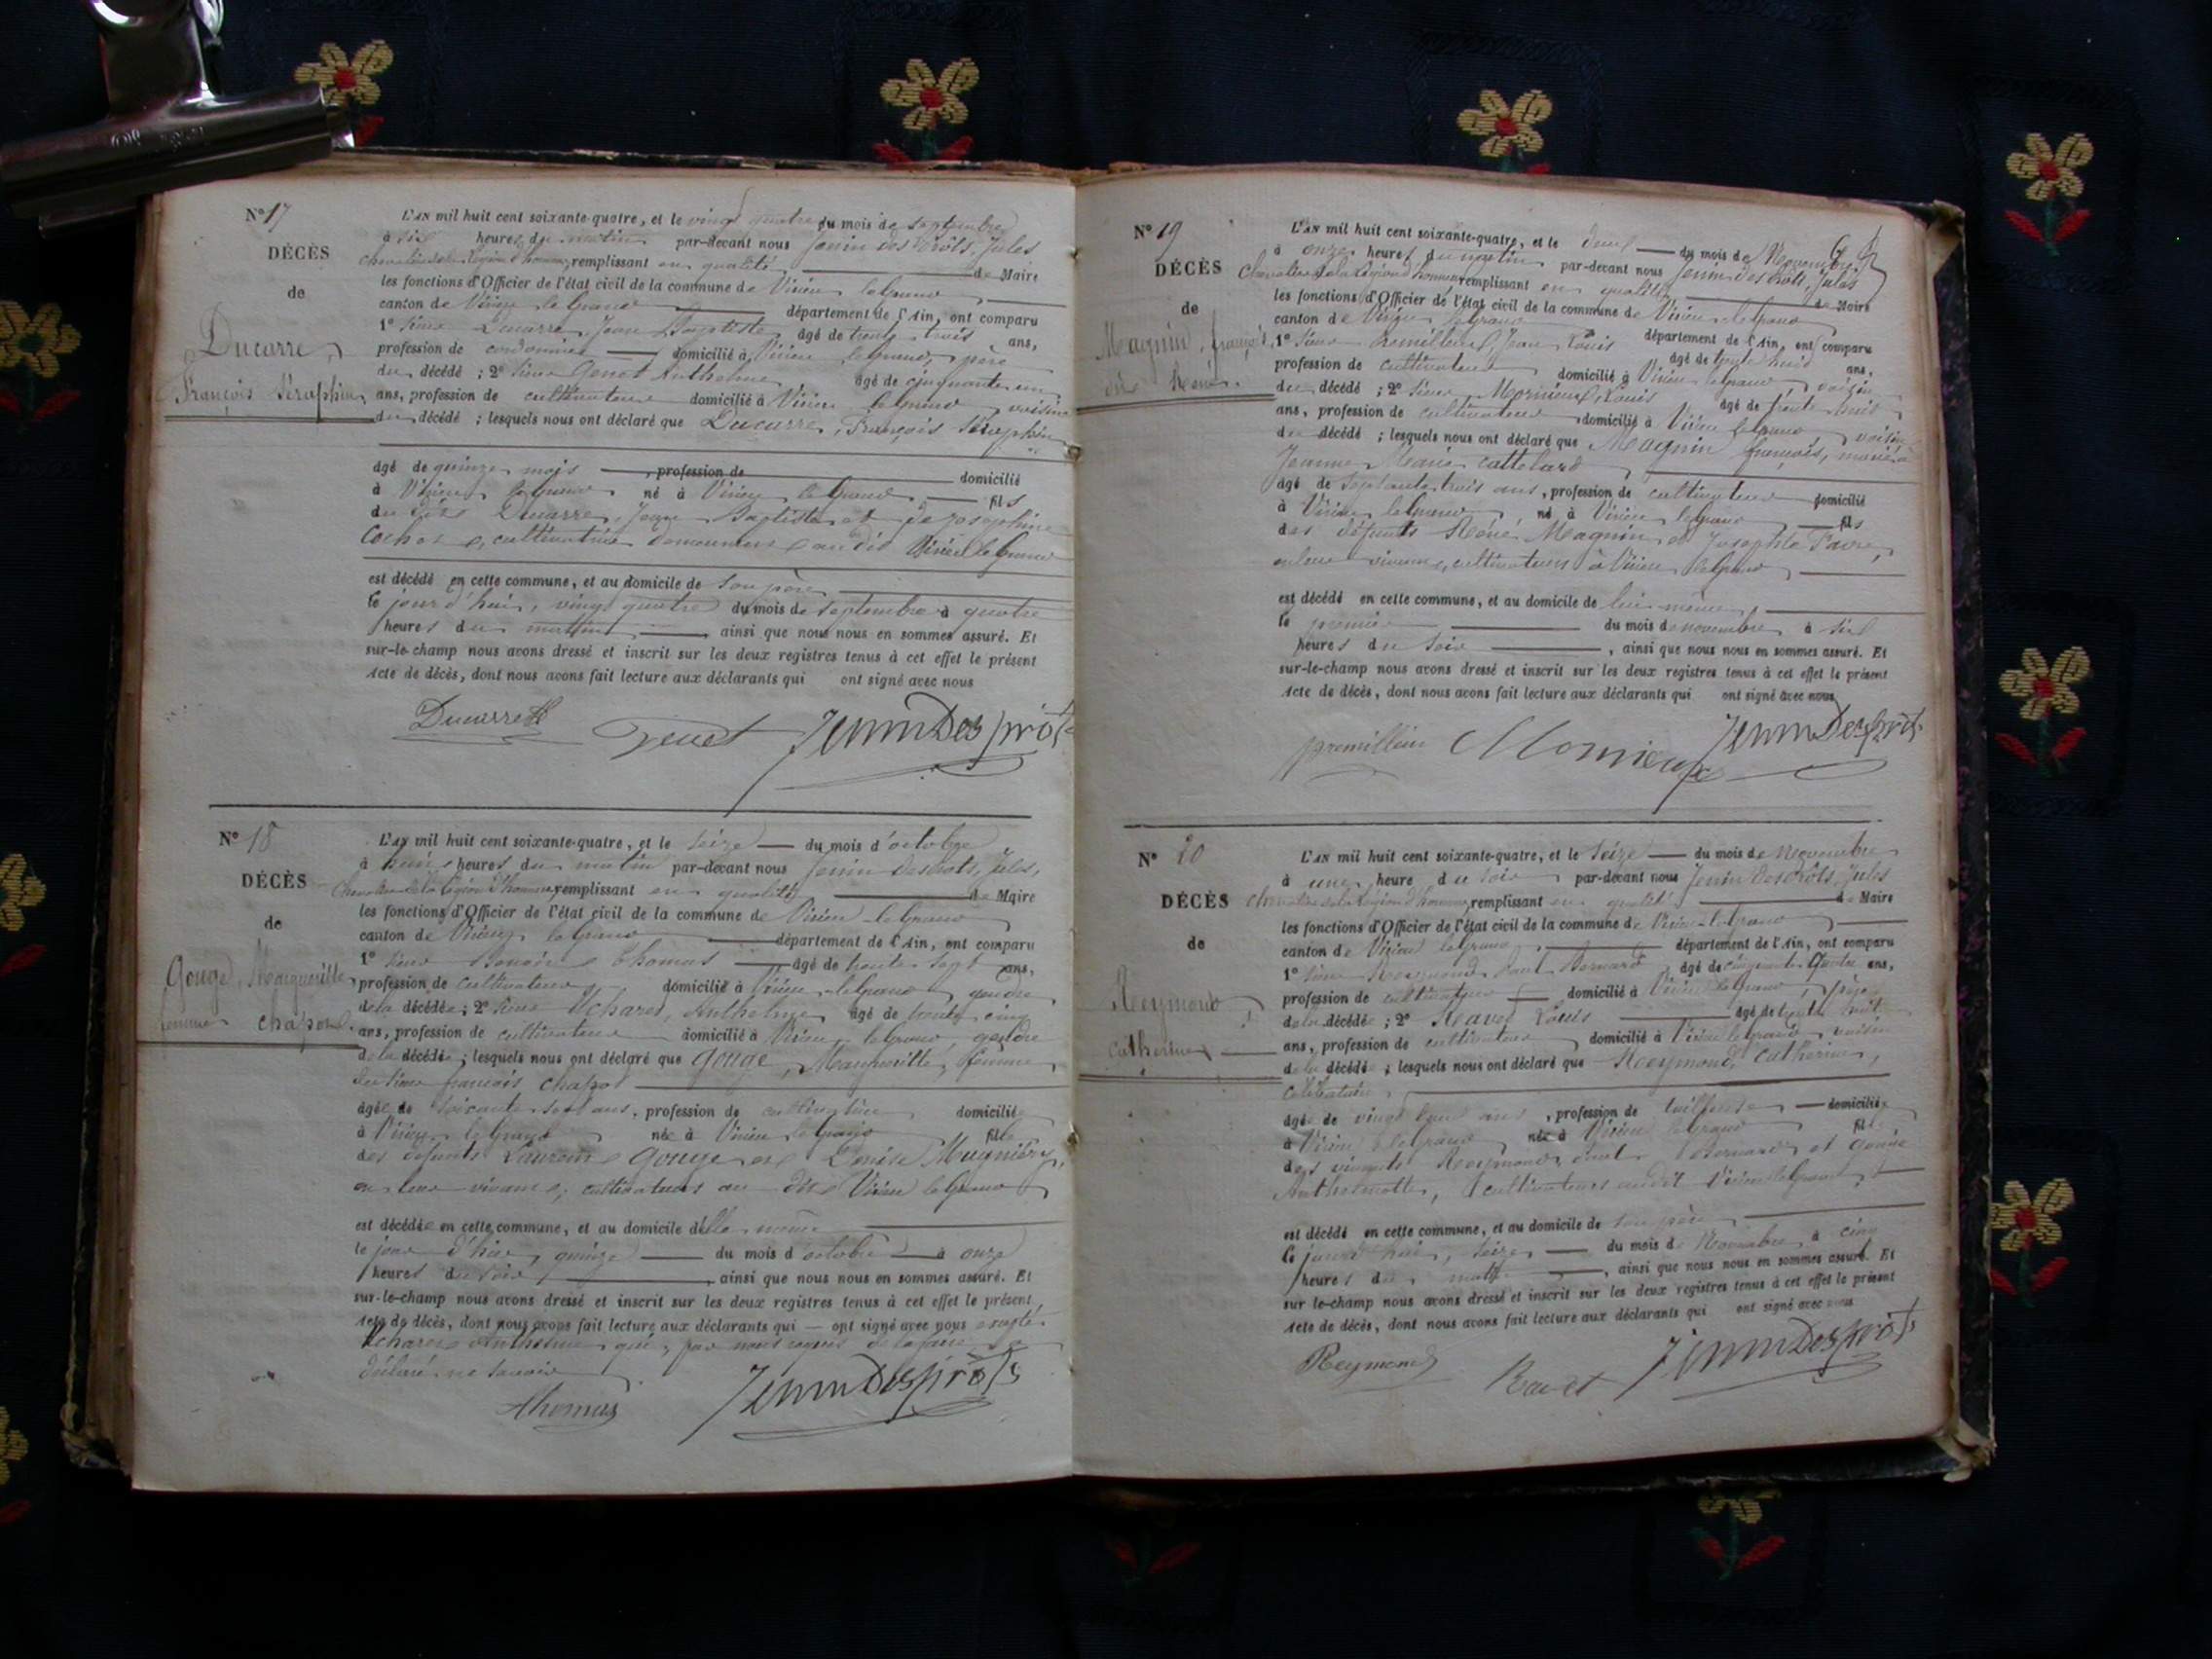 N° 17
DÉCÈS
de
Ducarre,
François Séraphin
L'AN mil huit cent soixante-quatre, et le vingt quatre du mois de septembre
à six heures du matin par-devant nous Jenin des Prôts, Jules
chevalier de la Légion d'honneur, remplissant en qualité de Maire
les fonctions d'Officier de l'état civil de la commune de Virieu le Grand
canton de Virieu le Grand département de l'Ain, ont comparu
1° sieur Ducarre Jean Baptiste âgé de trente trois ans,
profession de cordonnier domicilié à Virieu le Grand, père
du décédé ; 2° sieur Genet Anthelme âgé de cinquante un
ans, profession de cultivateur domicilié à Virieu le Grand voisin
du décédé ; lesquels nous ont déclaré que Ducarre, François Séraphin
âgé de quinze mois , profession de domicilié
à Virieu le Grand né à Virieu le Grand fils
du dit Ducarre, Jean Baptiste et de Josephine
cultivatrice demeurant audit Virieu le Grand
est décédé en cette commune, et au domicile de son père
le jour d'hui, vingt quatre du mois de septembre à quatre
heures du matin ainsi que nous nous en sommes assuré. Et
sur-le-champ nous avons dressé et inscrit sur les deux registres tenus à cet effet le présent
Acte de décès, dont nous avons fait lecture aux déclarants qui ont signé avec nous
Ducarre Genet Jenin Des prôts
N° 18
DÉCÈS
de
Gouge, Marguerite
femme chapot.
L'AN mil huit cent soixante-quatre, et le seize du mois d'octobre
à heures du matin par-devant nous Jenin des prots, Jules,
chevalier de la Légion d'honneur, remplissant en qualité de Maire
les fonctions d'Officier de l'état civil de la commune de Virieu le Grand
canton de Virieu le Grand département de l'Ain, ont comparu
1° sieur Thomas âgé de trente sept ans,
profession de cultivateur domicilié à Virieu le Grand gendre
de la décédée ; 2° sieur Anthelme âgé de trente cinq
ans, profession de cultivateur domicilié à Virieu le Grand, gendre
de la décédée ; lesquels nous ont déclaré que Gouge, Marguerite, femme
du sieur françois chapot
âgée de soixante sept ans, profession de cultivatrice domiciliée
à Virieu le Grand née à Virieu le Grand fille
des défunts Laurent Gouge et Denise Mugnier,
en leur vivant, cultivateurs au dit Virieu le Grand
est décédée en cette commune, et au domicile d'elle même
le jour d'hier, quinze du mois d'octobre à onze
heures du soir , ainsi que nous nous en sommes assuré. Et
sur-le-champ nous avons dressé et inscrit sur les deux registres tenus à cet effet le présent
Acte de décès, dont nous avons fait lecture aux déclarants qui — ont signé avec nous excepté
Anthelme qui, par nous requis de le faire a
déclaré ne savoir
Thomas Jenin Des prôts
N° 19
DÉCÈS
de
Magnin, françois,
dit René.
L'AN mil huit cent soixante-quatre, et le deux du mois de Novembre
à onze heures du matin par-devant nous Jenin des Prôts, Jules
chevalier de la Légion d'honneur, remplissant en qualité de Maire
les fonctions d'Officier de l'état civil de la commune de Virieu le Grand
canton de Virieu le Grand département de l'Ain, ont comparu
1° sieur Jean Louis âgé de trente huit ans,
profession de cultivateur domicilié à Virieu le Grand voisin
du décédé ; 2° sieur Mornieux, Louis âgé de trente huit
ans, profession de cultivateur domicilié à Virieu le Grand voisin
du décédé ; lesquels nous ont déclaré que Magnin françois, marié à
Jeanne Marie cattelard
âgé de septante trois ans, profession de cultivateur domicilié
à Virieu le Grand, né à Virieu le Grand fils
des défunts René Magnin et Josephte Favre,
en leur vivant, cultivateurs à Virieu le Grand
est décédé en cette commune, et au domicile de lui même,
le premier du mois de novembre à six
heures du soir , ainsi que nous nous en sommes assuré. Et
sur-le-champ nous avons dressé et inscrit sur les deux registres tenus à cet effet le présent
Acte de décès, dont nous avons fait lecture aux déclarants qui ont signé avec nous
Mornieux Jenin Des prôts
N° 20
DÉCÈS
de
Reymond
catherine
L'AN mil huit cent soixante-quatre, et le seize du mois de Novembre
à une heure du soir par-devant nous Jenin des Prôts, Jules
chevalier de la Légion d'honneur, remplissant en qualité de Maire
les fonctions d'Officier de l'état civil de la commune de Virieu-le Grand
canton de Virieu le Grand département de l'Ain, ont comparu
1° sieur Reymond Bernard âgé de cinquante quatre ans,
profession de cultivateur domicilié à Virieu le Grand, père
de la décédée ; 2° Ravet Louis âgé de trente huit
ans, profession de cultivateur domicilié à Virieu le Grand voisin
de la décédée ; lesquels nous ont déclaré que Reymond, Catherine,
célibataire,
âgée de vingt ans , profession de tailleuse domiciliée
à Virieu le Grand née à Virieu le Grand fille
des vivants Reymond Bernard et
Anthelmette, cultivateurs audit Virieu le Grand
est décédé en cette commune, et au domicile de son père
le jour d'hui, seize du mois de Novembre à cinq
heures du matin , ainsi que nous nous en sommes assuré. Et
sur le-champ nous avons dressé et inscrit sur les deux registres tenus à cet effet le présent
Acte de décès, dont nous avons fait lecture aux déclarants qui ont signé avec nous
Reymond Ravet Jenin Des prôts